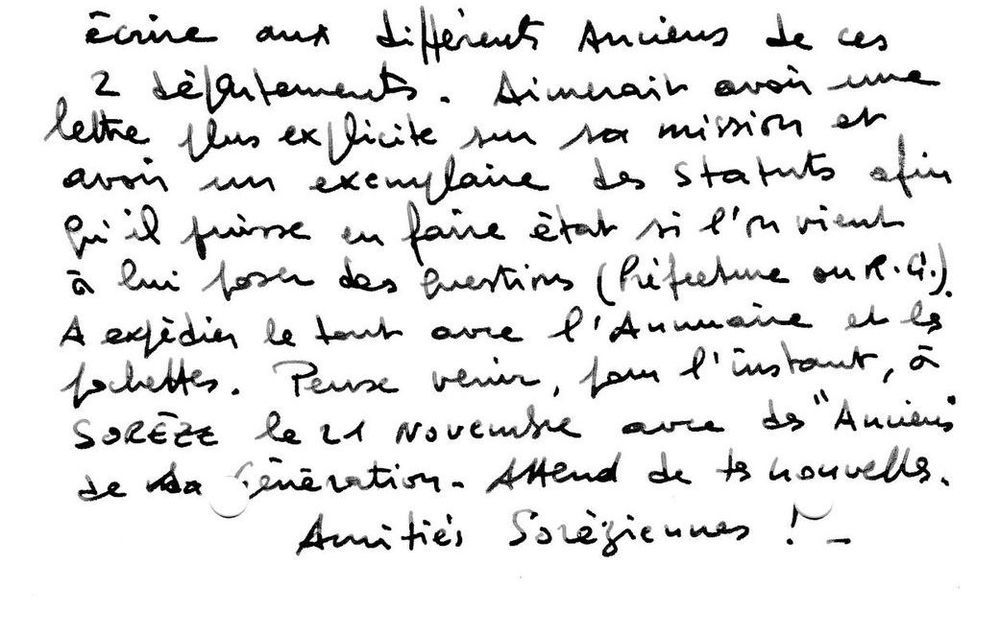 écrire aux différents Anciens de ces
2 départements. Aimerait avoir une
lettre plus explicite sur sa mission et
avoir un exemplaire des Statuts afin
qu'il puisse en faire état si l'on vient
à lui poser des questions (Préfecture ou R.G.).
A expédier le tout avec l'Annuaire et les
pochettes. Pense venir, pour l'instant, à
SORÈZE le 21 Novembre avec des "Anciens"
de sa Génération. Attend de tes nouvelles.
Amitiés Sorèziennes ! -